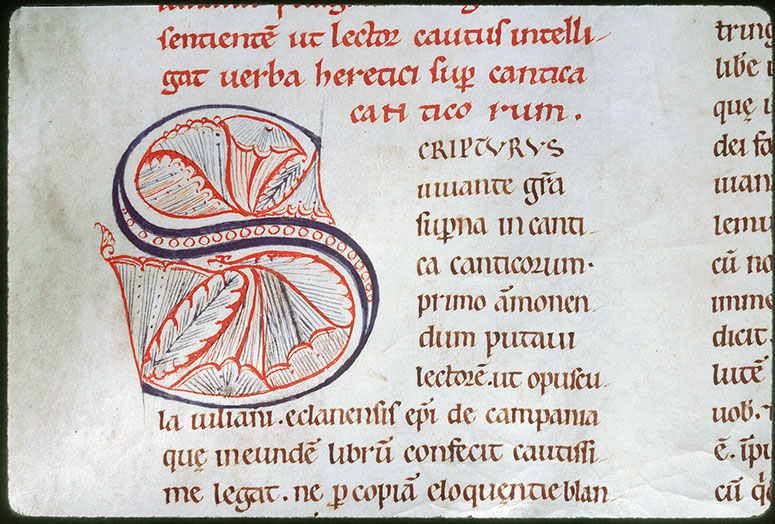 sentientē ut lector cautus intelli-
gat uerba heretici sup̄ cantica
canticorum.
SCRIPTURUS
iuuante gr̄a
sup̄na in canti-
ca canticorum.
primo āmonen-
dum putaui
lectorē. ut opuscu-
la iuliani. eclanensis ep̄i de campania
quę in eundē librū confecit cautissi-
me legat. ne ꝑ copiā eloquentię blan
tring
lib̄e
quę
dei fa
iuan
lemu
cū no
imme
dicit.
lucē
uob.
ē. ip̄u
cū